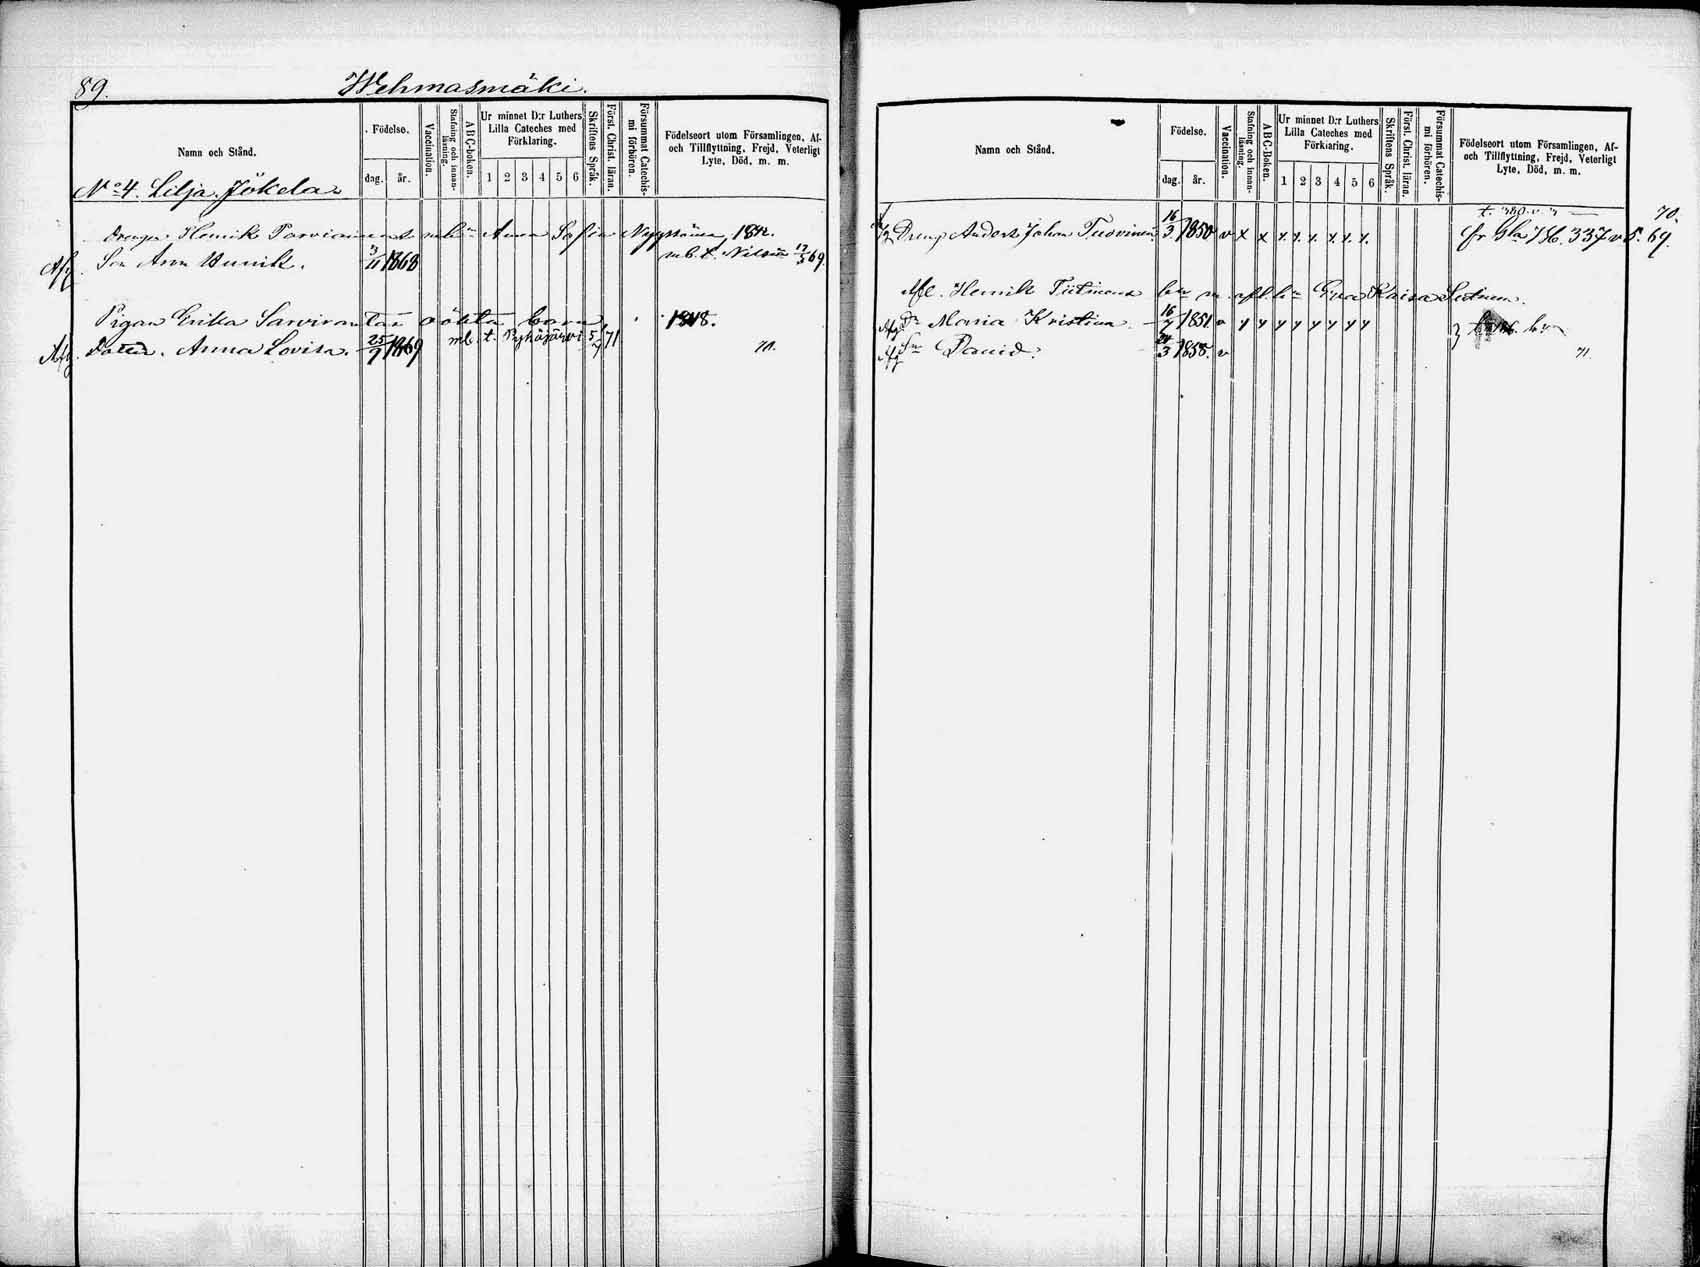 89.
Wehmasmäki.
Namn och Stånd.
Födelse.
dag. år.
Vaccination.
Stafning och innan-läsning.
ABC-boken.
Ur minnet D:r Luthers Lilla Cateches med Förklaring.
1 2 3 4 5 6
Skriftens Språk.
Först. Christ. läran.
Försummat Catechis-mi förhören.
Födelseort utom Församlingen, Af-
och Tillflyttning, Frejd, Veterligt
Lyte, Död, m. m.
No 4. Lilja. Jökela
Drengen Henrik Parviainens Anna Sofia 1842.
Afg Son Aron Henrik. 3/11 1868 m.b. t. Nilsiä 12/5 69
Pigan Erika oäkta barn 1848.
Afg Dotter. Anna Lovisa. 25/7 1869 mb. t. Pyhäjärvi 5/7 71
71.
Namn och Stånd.
Födelse.
dag. år.
Vaccination.
Stafning och innan-läsning.
ABC-Boken.
Ur minnet D:r Luthers Lilla Cateches med Förklaring.
1 2 3 4 5 6
Skriftens Språk.
Först. Christ. läran.
Försummat Catechis-mi förhören.
Födelseort utom Församlingen, Af-
och Tillflyttning, Frejd, Veterligt
Lyte, Död, m. m.
t. 380 70.
Dreng Anders Johan Tuovinen 16/3 1850 v x x x x x x x x. fr 337 v S. 69.
Afl. Henrik Tiitinens Eva Kaisa
Afg Dr Maria Kristina 16/7 1851 v x x x x x x x x
Afg Sn David. 24/3 1858. v 71.